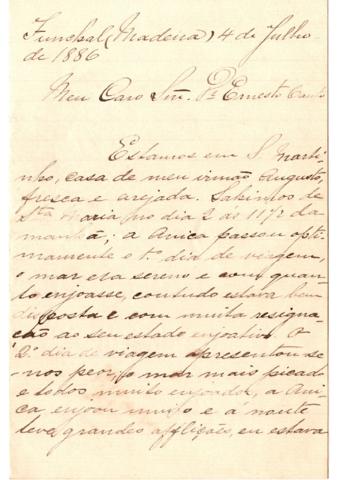 Funchal (Madeira) 4 de Julho
de 1886
Meu Caro Snr. Dr. Ernesto
Estamos em S. Marti-
nho, casa de meu irmão Augusto,
fresca e arejada. Sahimos de
Sta Maria, no dia 2 ás 11 1/2 da
manhã; a Anica passou opti-
mamente o 1º dia de viagem,
o mar era sereno e com quan-
to enjoasse, contudo estava bem
disposta e com muita resigna-
ção ao seu estado enjoativo. O
2º dia de viagem apresentou-se
-nos peor, o mar mais picado
e todos muito enjoados, a Ani-
ca enjoou muito e á noute
teve grandes afflições, eu estava